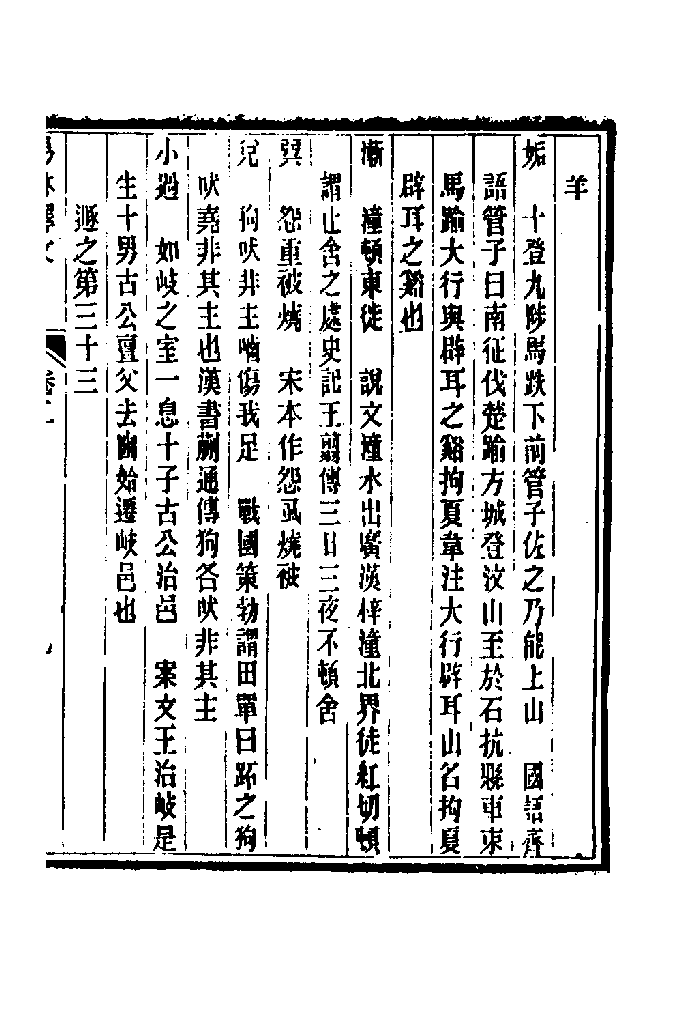 羊
姤　十登九陟馬跌下前管子佐之乃能上山　國語齊
語管子曰南征伐楚踰方城登汶山至於石抗縣車束
馬踰大行與辟耳之谿拘夏韋注大行辟耳山名拘夏
辟耳之谿也
漸　潼頓東徒　說文潼水出廣漢梓潼北界徒紅切頓
謂止舍之處史記王翦傳三日三夜不頓舍
巽　怨重被燒　宋本作怨虱燒被
兌　狗吠非主喃傷我足　戰國策勃謂田單曰跖之狗
吠堯非其主也漢書蒯通傳狗各吠非其主
小過　如岐之室一息十子古公治邑　案文王治岐是
生十男古公亶父去豳始遷岐邑也
遯之第三十三
卷二
九